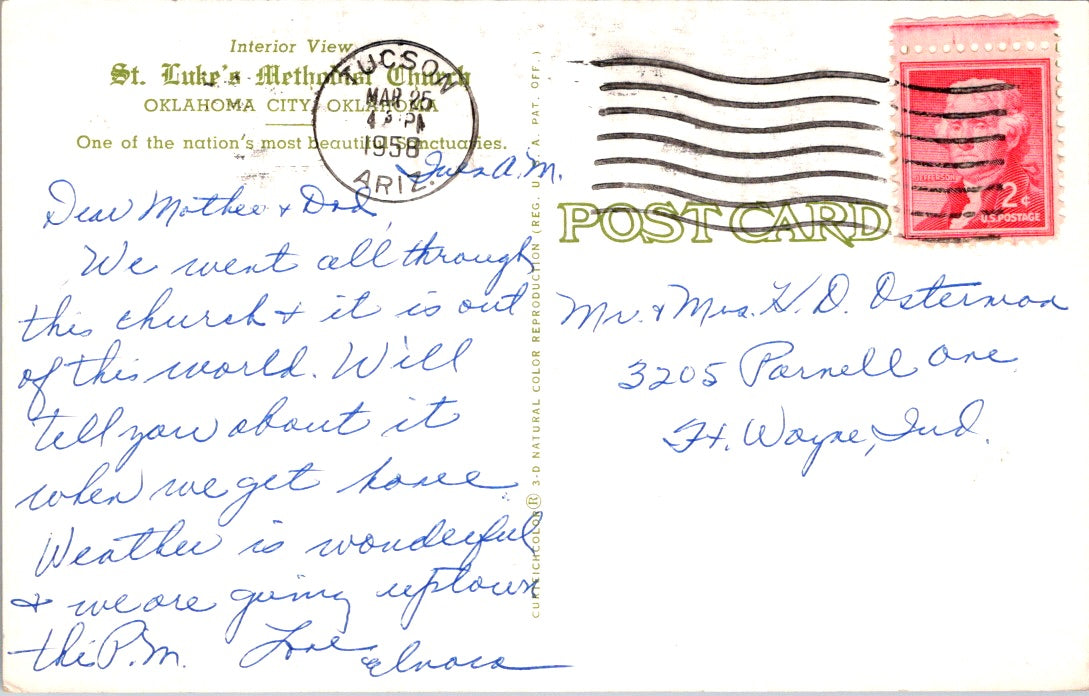 Interior View
St. Luke's Methodist Church
OKLAHOMA CITY, OKLAHOMA
One of the nation's most beautiful Sanctuaries.
TUCSON
MAR 25
4 PM
1958
ARIZ.
Tues A.M.
Dear Mother & Dad,
We went all through
this church & it is out
of this world. Will
tell you about it
when we get home
Weather is wonderful
& we are going uptown
this P.M. Love
CURTEICHCOLOR® 3-D NATURAL COLOR REPRODUCTION (REG. U.S.A. PAT. OFF.)
POST CARD
JEFFERSON
2¢
U.S. POSTAGE
Mr. & Mrs. H. D. Osterman
3205 Parnell Ave
Ft. Wayne, Ind.